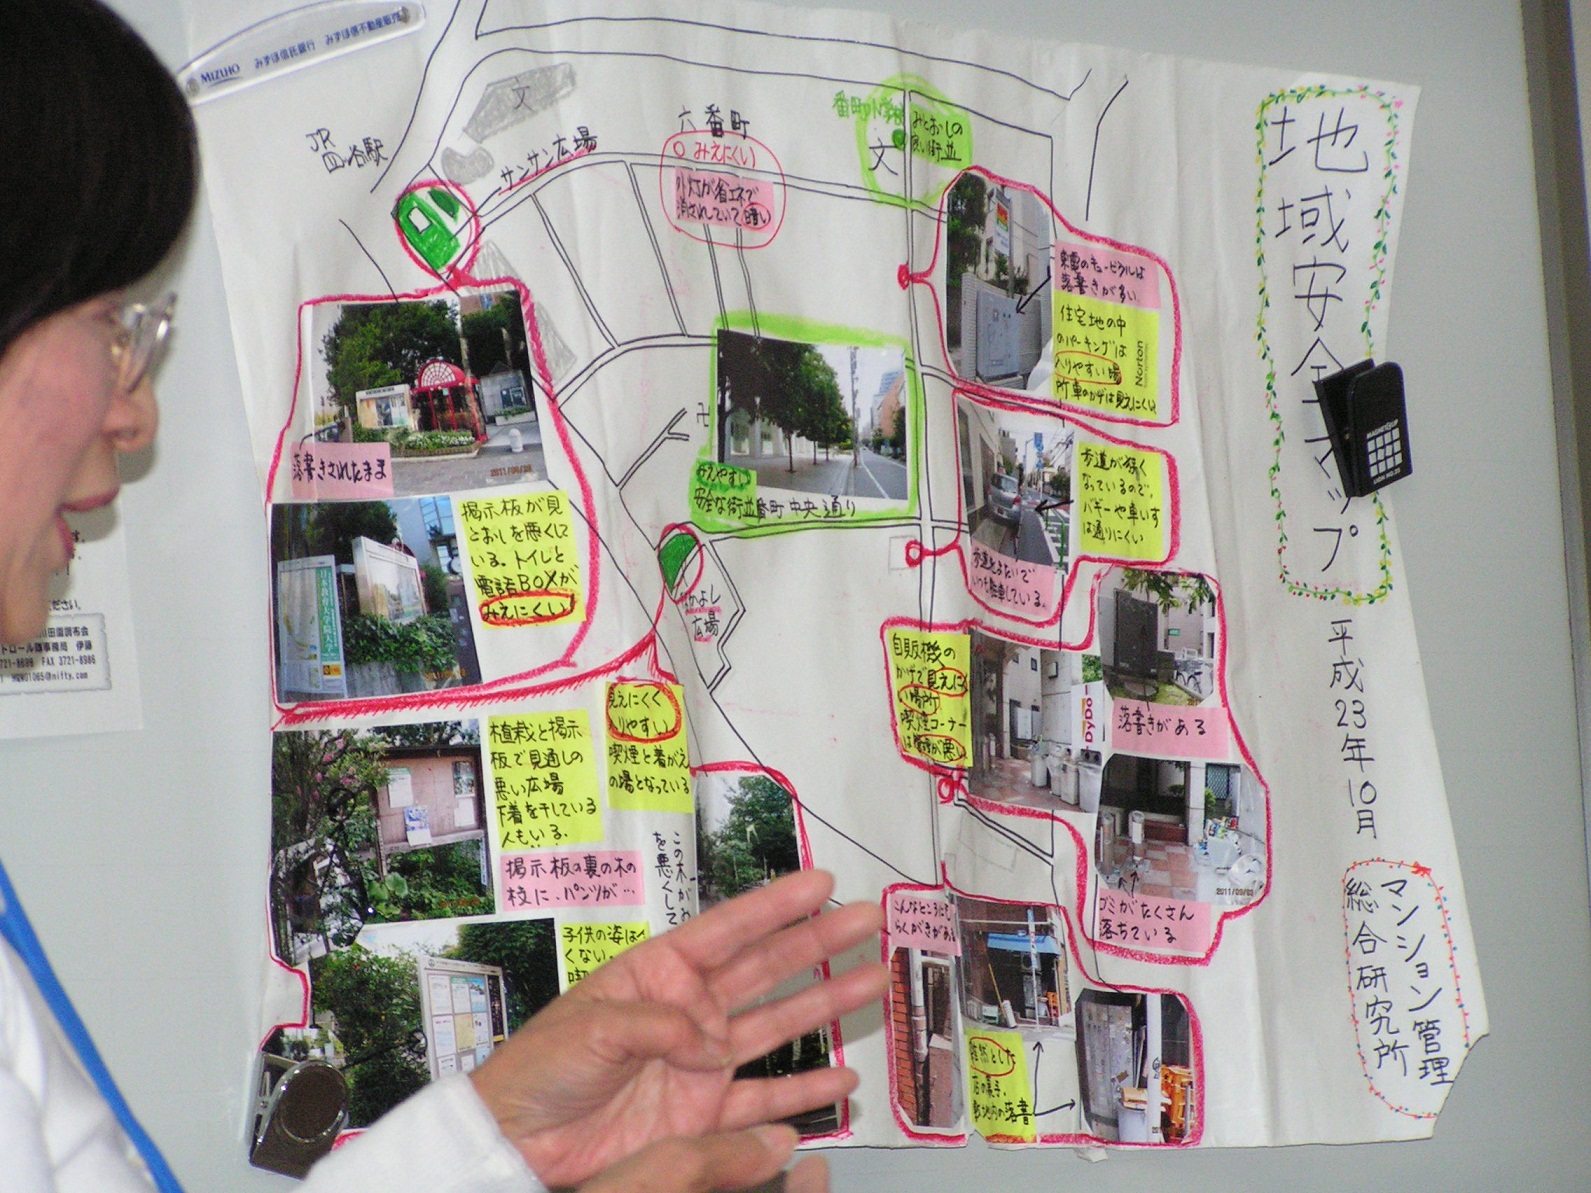 MIZUHO みずほ信託銀行 みずほ信不動産販売
JR
四ッ谷駅
文
サンサン広場
六番町
みえにくい
外灯が省エネで
消されていて暗い
番町小学校
文
みとおしの
良い街並
東電のキュービクルは
落書きが多い。
住宅地の中
のパーキングは
入りやすい場
所車のかげは見えにくい
Norton
落書きされたまま
2011/09/26
掲示板が見
とおしを悪くに
いる。トイレと
電話BOXが
みえにくい
卍
みえやすい
安全な街並
番町中央通り
歩道が狭く
なっているので、
バギーや車いす
は通りにくい
歩道をまたいで
いつも駐車している。
なかよし
広場
自販機の
かげで見えにく
い場所
喫煙コーナー
DyDo
落書きがある
ゴミがたくさん
落ちている
見えにくく
入りやすい
喫煙と着がえ
の場となっている
植栽と掲示
板で見通しの
悪い広場
下着を干している
人もいる.
掲示板の裏の木の
枝に、パンツが…
この木がみ
を悪くして
子供の姿は
くない。
こんなところにも
らくがきがある
雑然とした
地域安全マップ
平成23年10月
マンション管理
総合研究所
ださい。
田園調布会
トロール隊事務局 伊藤
721-8689 FAX 3721-8986
HQM01065@nifty.com